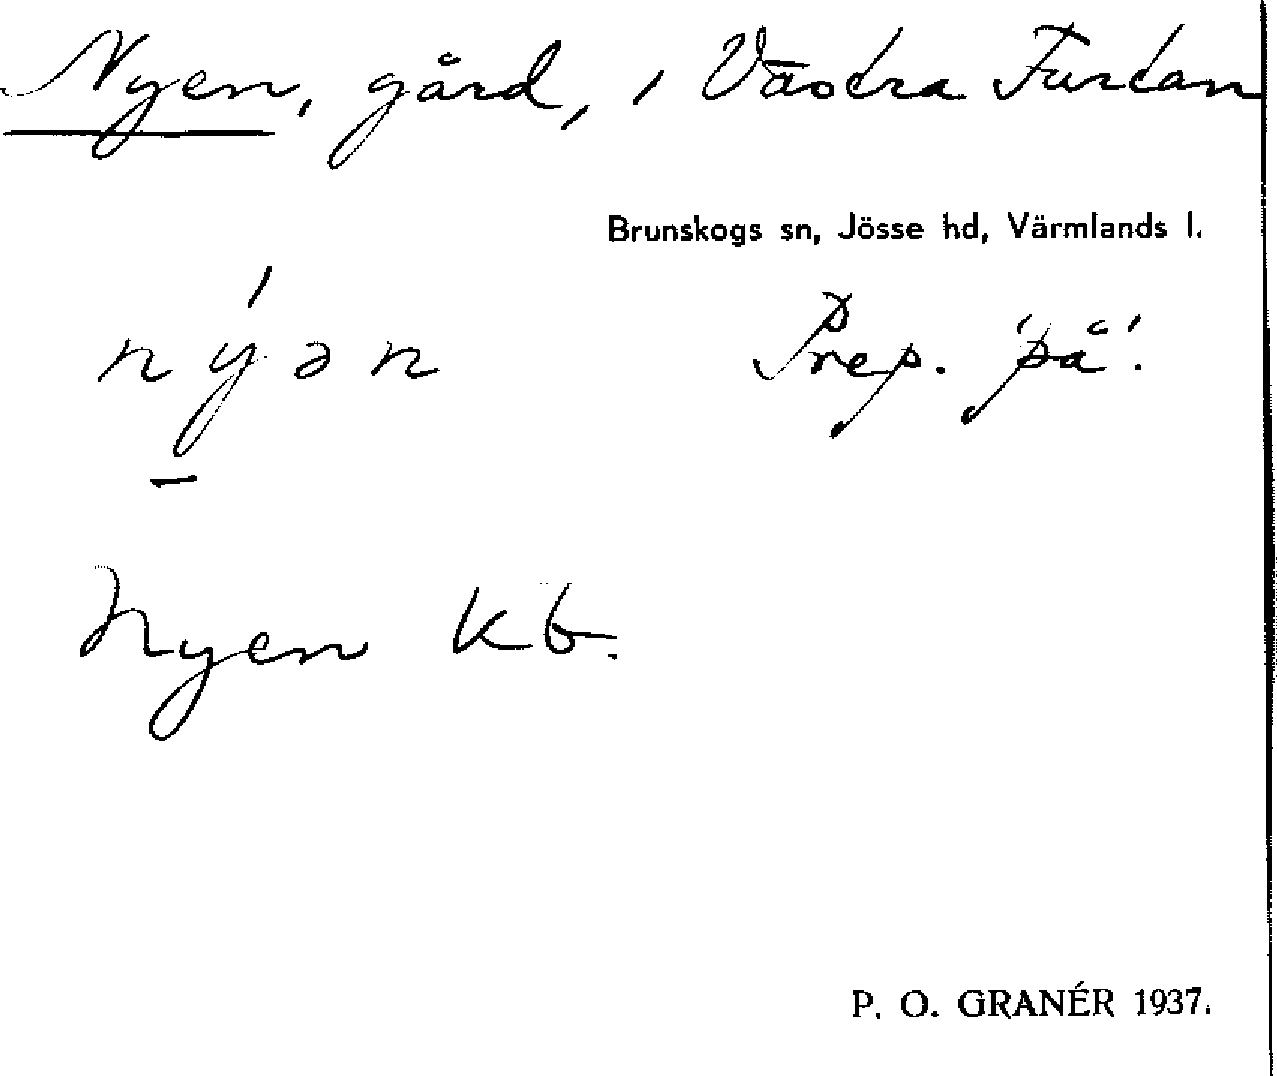 Nyen, gård, i Västra Furtan
Brunskogs sn, Jösse hd, Värmlands l.
nýən Prep. 'på'.
Nyen kb.
P. O. GRANÉR 1937.